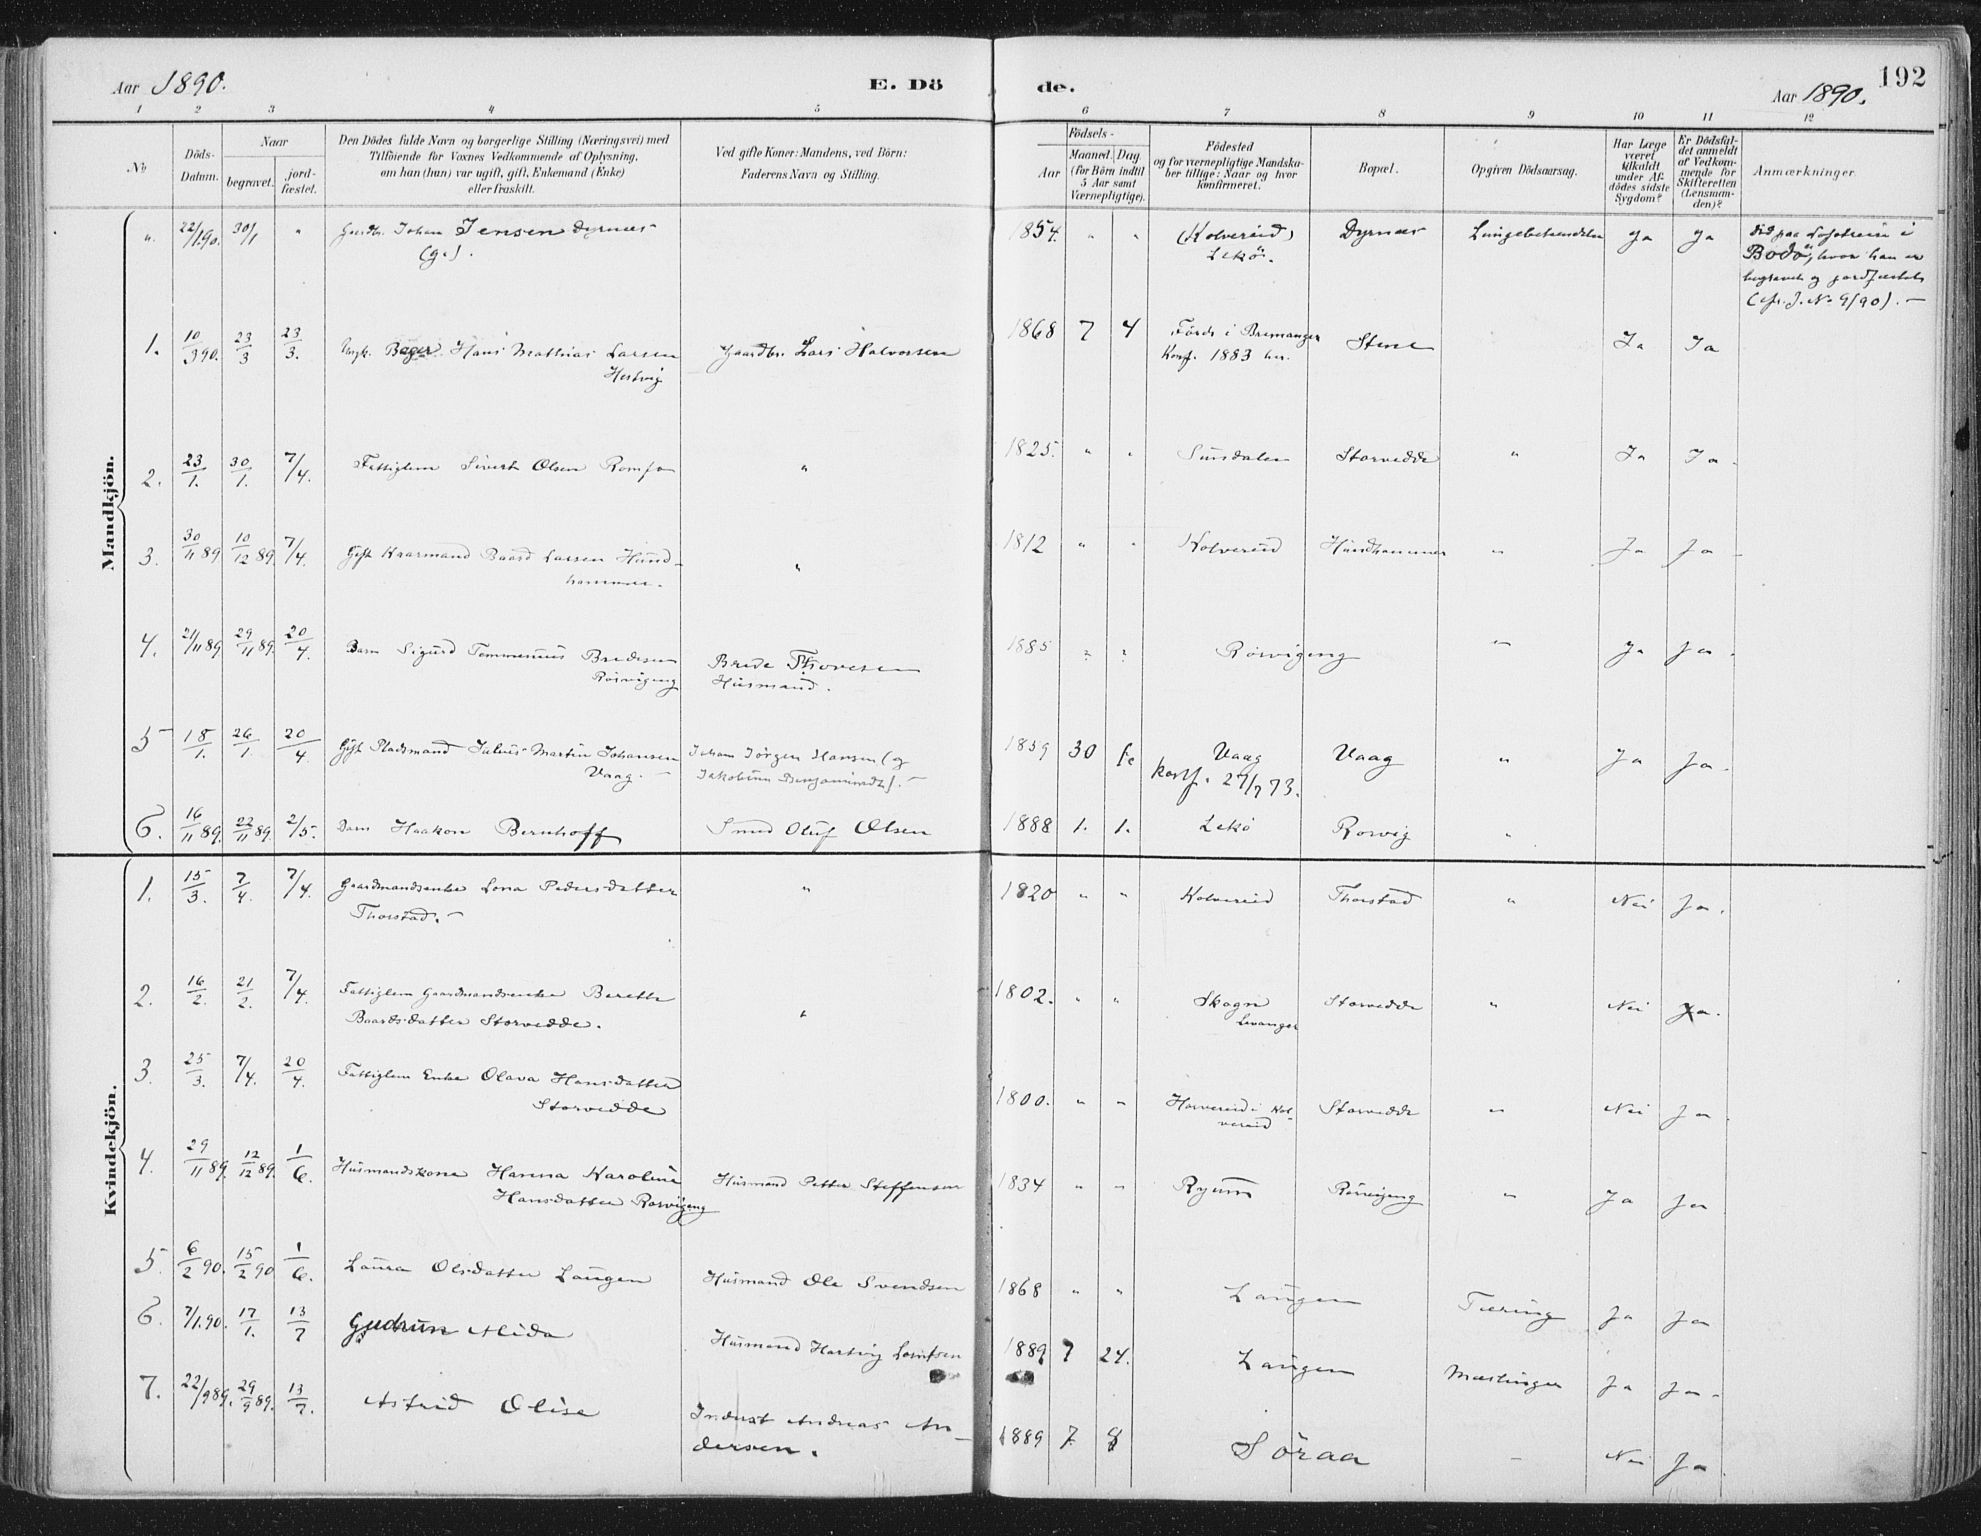 192
Aar 1890.
E. Dö de.
Aar 1890.
1 2 3 4 5 6 7 8 9 10 11 12
No
Döds-
Datum.
Naar
begravet.
jord-
fæstet.
Den Dödes fulde Navn og borgerlige Stilling (Næringsvei) med
Tilföiende for Voxnes Vedkommende af Oplysning,
om han (hun) var ugift, gift, Enkemand (Enke)
eller fraskilt.
Ved gifte Koner: Mandens, ved Börn:
Faderens Navn og Stilling.
Födsels-
Aar
Maaned. Dag
(for Börn indtil
5 Aar samt
Værnepligtige).
Födested
og for værnepligtige Mandska-
ber tillige: Naar og hvor
konfirmeret.
Bopæl.
Opgiven Dödsaarsag.
Har Læge
været
tilkaldt
under Af-
dödes sidste
Sygdom?
Er Dödsfal-
det anmeldt
af Vedkom-
mende for
Skifteretten
(Lensman-
den)?
Anmærkninger.
Mandkjön.
" 22/1 90. 30/1 " Gaardbr. Johan Jensen Dyrnæs 1854. " " (Kolvereid) Dyrnæs Lungebetændelse Ja Ja Död paa Lofotreise i
(g.). Lekö. Bodö, hvor han er
begravet og jordfæstet
(cfr. J. No 9/90). —
1. 10/3 90. 23/3 23/3. Ungk. Bager Hans Mathias Larsen Gaardbr. Lars Halvorsen 1868 7 4 Förde i Bremanger Stene Ja Ja
Hestvig Konf. 1883 her.
2. 23/1. 30/1. 7/4. Fattiglem Sivert Olsen Romfo " 1825. " " Sundalen Storvedde " Ja Ja.
3. 30/11 89 10/12 89. 7/4. Gift Kaarmand Baard Larsen Hund- " 1812 " " Kolvereid Hundhammer " Ja Ja
hammer.
4. 21/11 89 29/11 89. 20/4. Barn Sigurd Bredesen Brede Thovesen 1885 ? ? Rörvigeng " Ja Ja.
Rörvigeng Husmand.
5 18/1. 26/1. 20/4 Gift Pladsmand Julius Martin Johansen Johan Jörgen Hansen (og 1859 30 Vaag Vaag " Ja Ja.
Vaag. — Jakobina Benjaminsdt). — konf. 27/7 73.
6. 16/11 89. 22/11 89. 2/5. Barn Haakon Bernhoff Smed Oluf Olsen 1888 1. 1. Lekö Rörvig "
Kvindekjön.
1. 15/3. 7/4. 7/4. Gaardmandsenke Lona Pedersdatter " 1820 " " Kolvereid Thorstad " Nei Ja.
Thorstad. —
2. 16/2. 21/2. 7/4 Fattiglem Gaardmandsenke Berette " 1802. " " Skogn Storvedde " Nei Ja.
Baardsdatter Storvedde. Levanger
3. 25/3. 7/4. 20/4. Fattiglem Enke Olava Hansdatter 1800. " " Horvereid i Kol- Storvedde " Nei Ja
Storvedde vereid
4. 29/11 89. 12/12 89. 1/6. Husmandskone Hanna Karoline Husmand Petter Steffensen 1834 " " Ryum Rörvigeng " Ja Ja
Hansdatter Rörvigeng
5 6/2 90. 15/2 90 1/6. Laura Olsdatter Laugen Husmand Ole Svendsen 1868 " " Laugen Tæring Ja Ja
6. 7/1.90. 17/1. 13/7 Gudrun Alida Husmand Hartvig 1889 7 24. Laugen Mæslinger Ja Ja.
7. 22/9 89. 29/9 89. 13/7. Astrid Olise Inderst Andreas An- 1889 7 8 Söraa — Nei Ja
dersen.